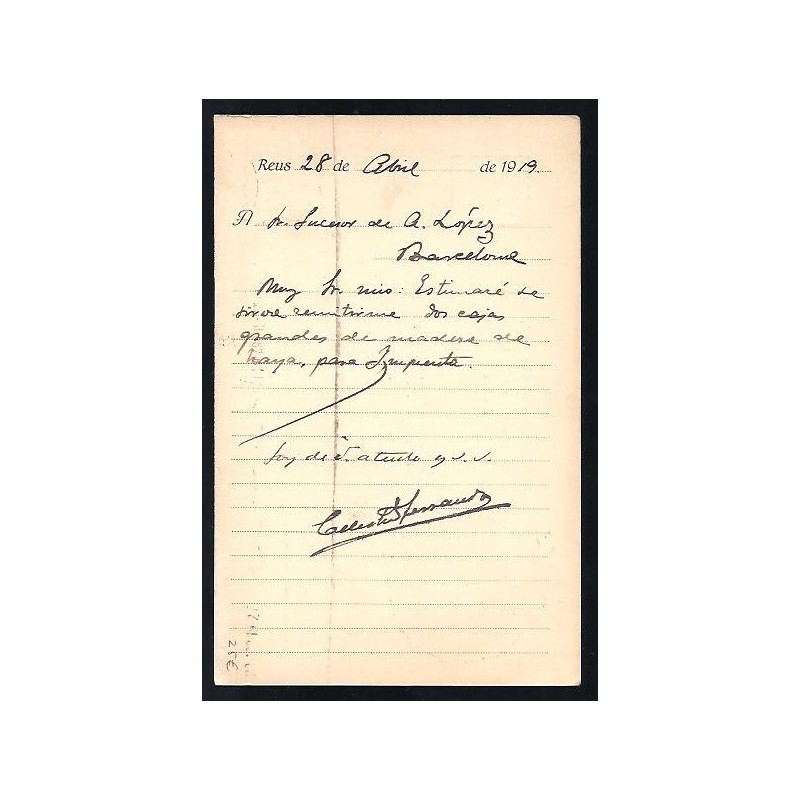 Reus 28 de Abril de 1919.
A Sr. Sucesor de A. López
Barcelona
Muy Sr. mio: Estimaré se
sirva remitirme dos cajas
grandes de madera de
haya, para Imprenta.
Soy de V. atento y s. s.
Celestino Ferrando
25€